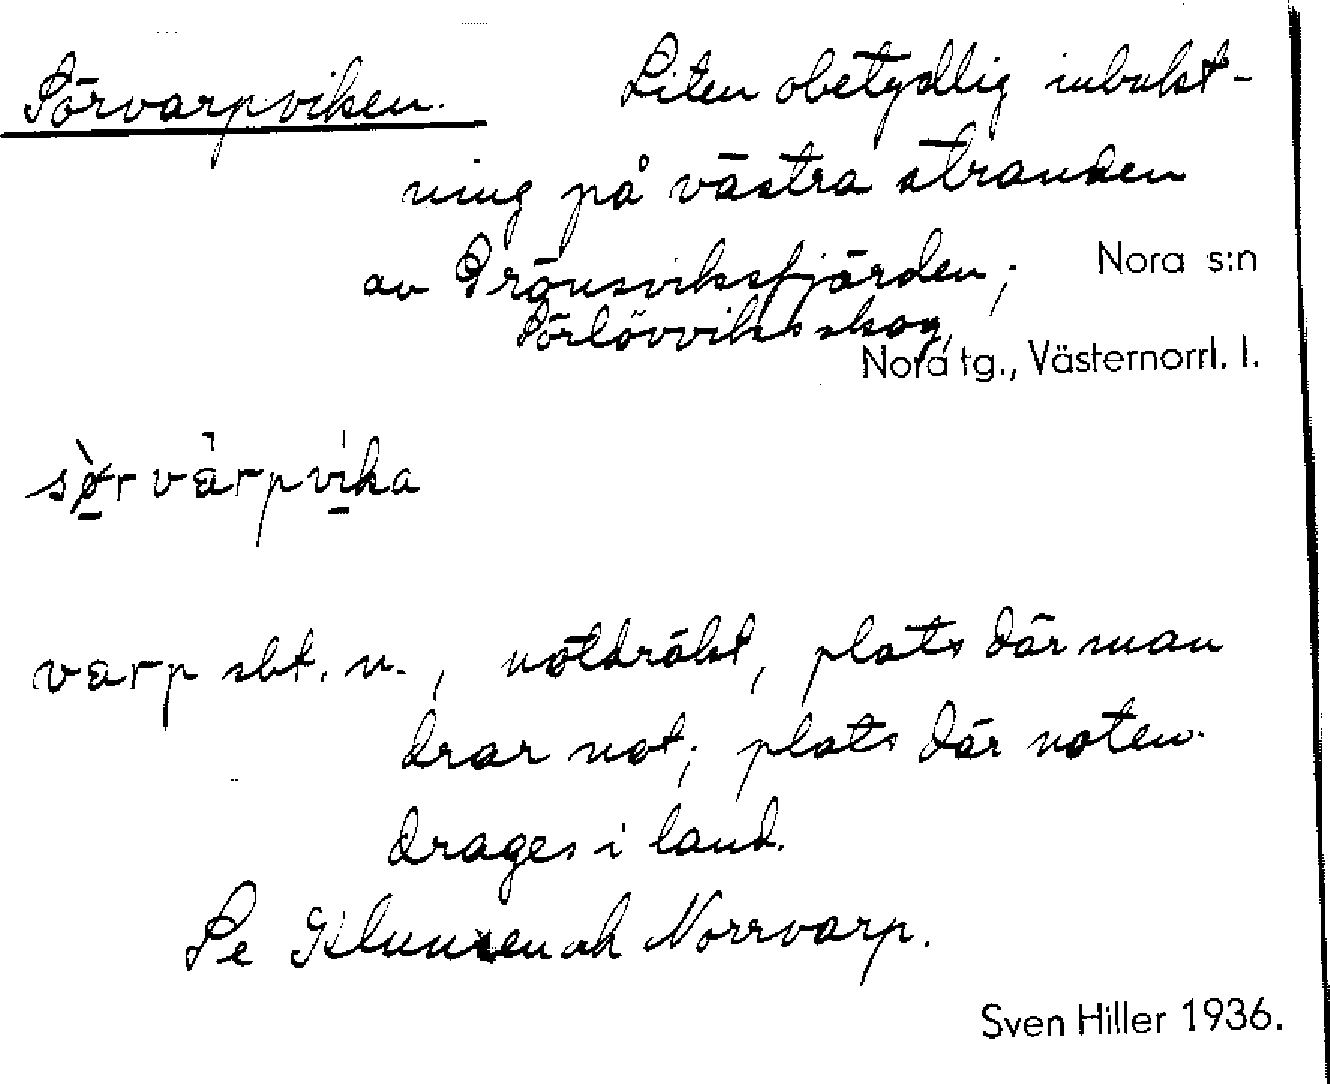 Sörvarpviken. Liten obetydlig inbukt-
ning på västra stranden
av Grönsviksfjärden; Nora s:n
Sörlövviks skog,
Nora tg., Västernorrl. l.
sørvarpvika
varp sbt. n., notdräkt, plats där man
drar not; plats där noten
drages i land.
Se och Norrvarp.
Sven Hiller 1936.